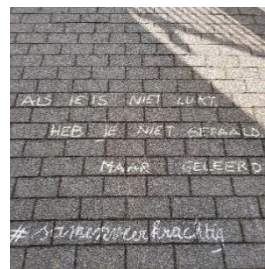 ALS IETS NIET LUKT
HEB JE NIET GEFAALD
MAAR GELEERD
#samenveerkrachtig